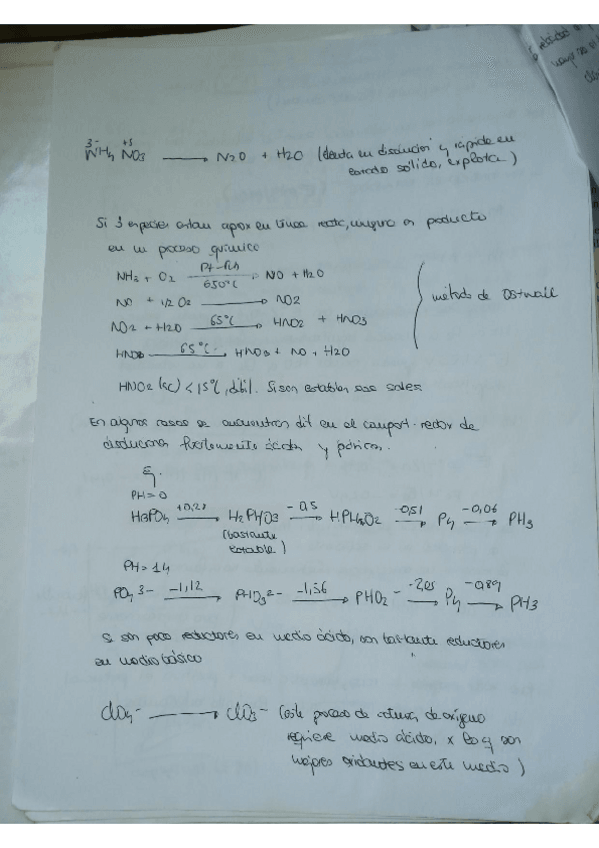 3- +5
NH4 NO3 → N2O + H2O (lenta en disolución y rápida en
estado sólido, explota)
Si 3 especies estan aprox en linea recta, ninguna es producto
en un proceso químico
NH3 + O2 Pt-Rh 650°C → NO + H2O
NO + 1/2 O2 → NO2
NO2 + H2O 65°C → HNO2 + HNO3
65°C → HNO3 + NO + H2O
método de Ostwall
HNO2 (ac) < 15°C, débil. Si son estables sus sales
En algunos casos se encuentran dif en el comport. redox de
disoluciones fuertemente ácidas y básicas.
Ej.
PH=0
H3PO4 → H2PHO3 -0,5 → HPH2O2 -0,51 → P4 -0,06 → PH3
(bastante
estable)
PH=14
PO4 3- -1,12 → PHO3 2- -1,56 → PHO2 - -2,05 → P4 -0,89 → PH3
Si son poco reductores en medio ácido, son bastante reductores
en medio básico
ClO4- → ClO3- (este proceso de rotura de oxígeno
requiere medio ácido, x eso son
mejores oxidantes en este medio)